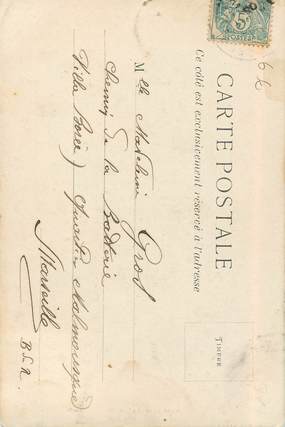 CARTE POSTALE
Ce côté est exclusivement réservé à l'adresse
TIMBRE
5
POSTES
Mlle Madeleine Gros
Chemin de la Batterie
Villa Borée) Quartier Malmousque
Marseille
B.d.R.